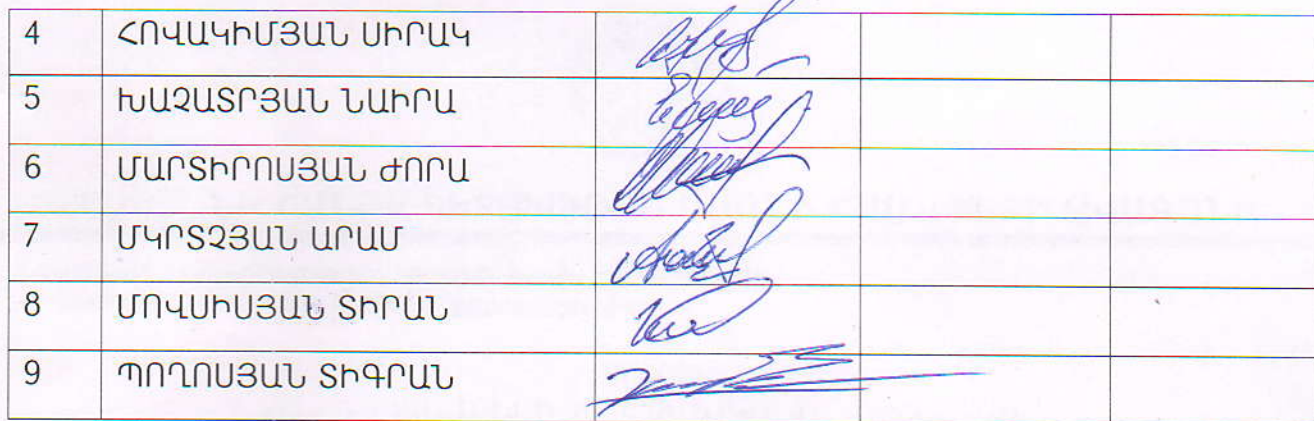 4 ՀՈՎԱԿԻՄՅԱՆ ՍԻՐԱԿ
5 ԽԱՉԱՏՐՅԱՆ ՆԱԻՐԱ
6 ՄԱՐՏԻՐՈՍՅԱՆ ԺՈՐԱ
7 ՄԿՐՏՉՅԱՆ ԱՐԱՄ
8 ՄՈՎՍԻՍՅԱՆ ՏԻՐԱՆ
9 ՊՈՂՈՍՅԱՆ ՏԻԳՐԱՆ